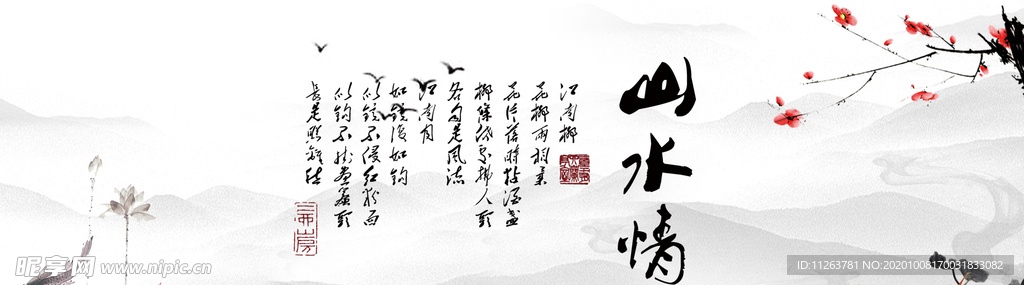 山水情
江南柳
花柳两相柔
花片落时黏酒盏
柳条低处拂人头
各自是风流
江南月
如镜复如钩
似镜不侵红粉面
似钩不挂画帘头
长是照离愁
昵享网 www.nipic.cn
ID:11263781 NO:20201008170031833082